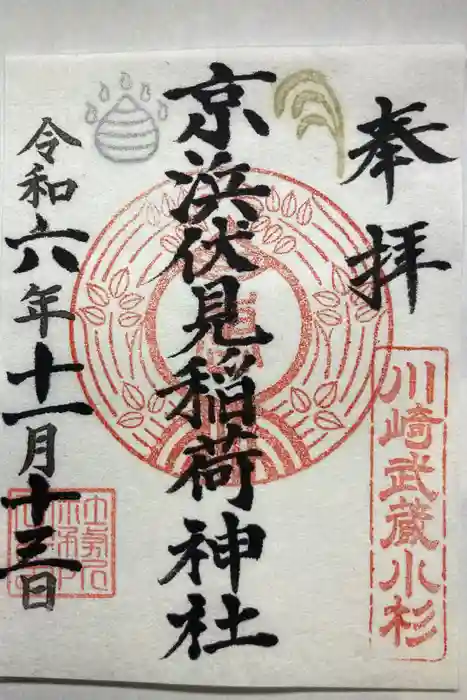 奉拝
川崎武蔵小杉
京浜伏見稲荷神社
令和六年十一月十三日